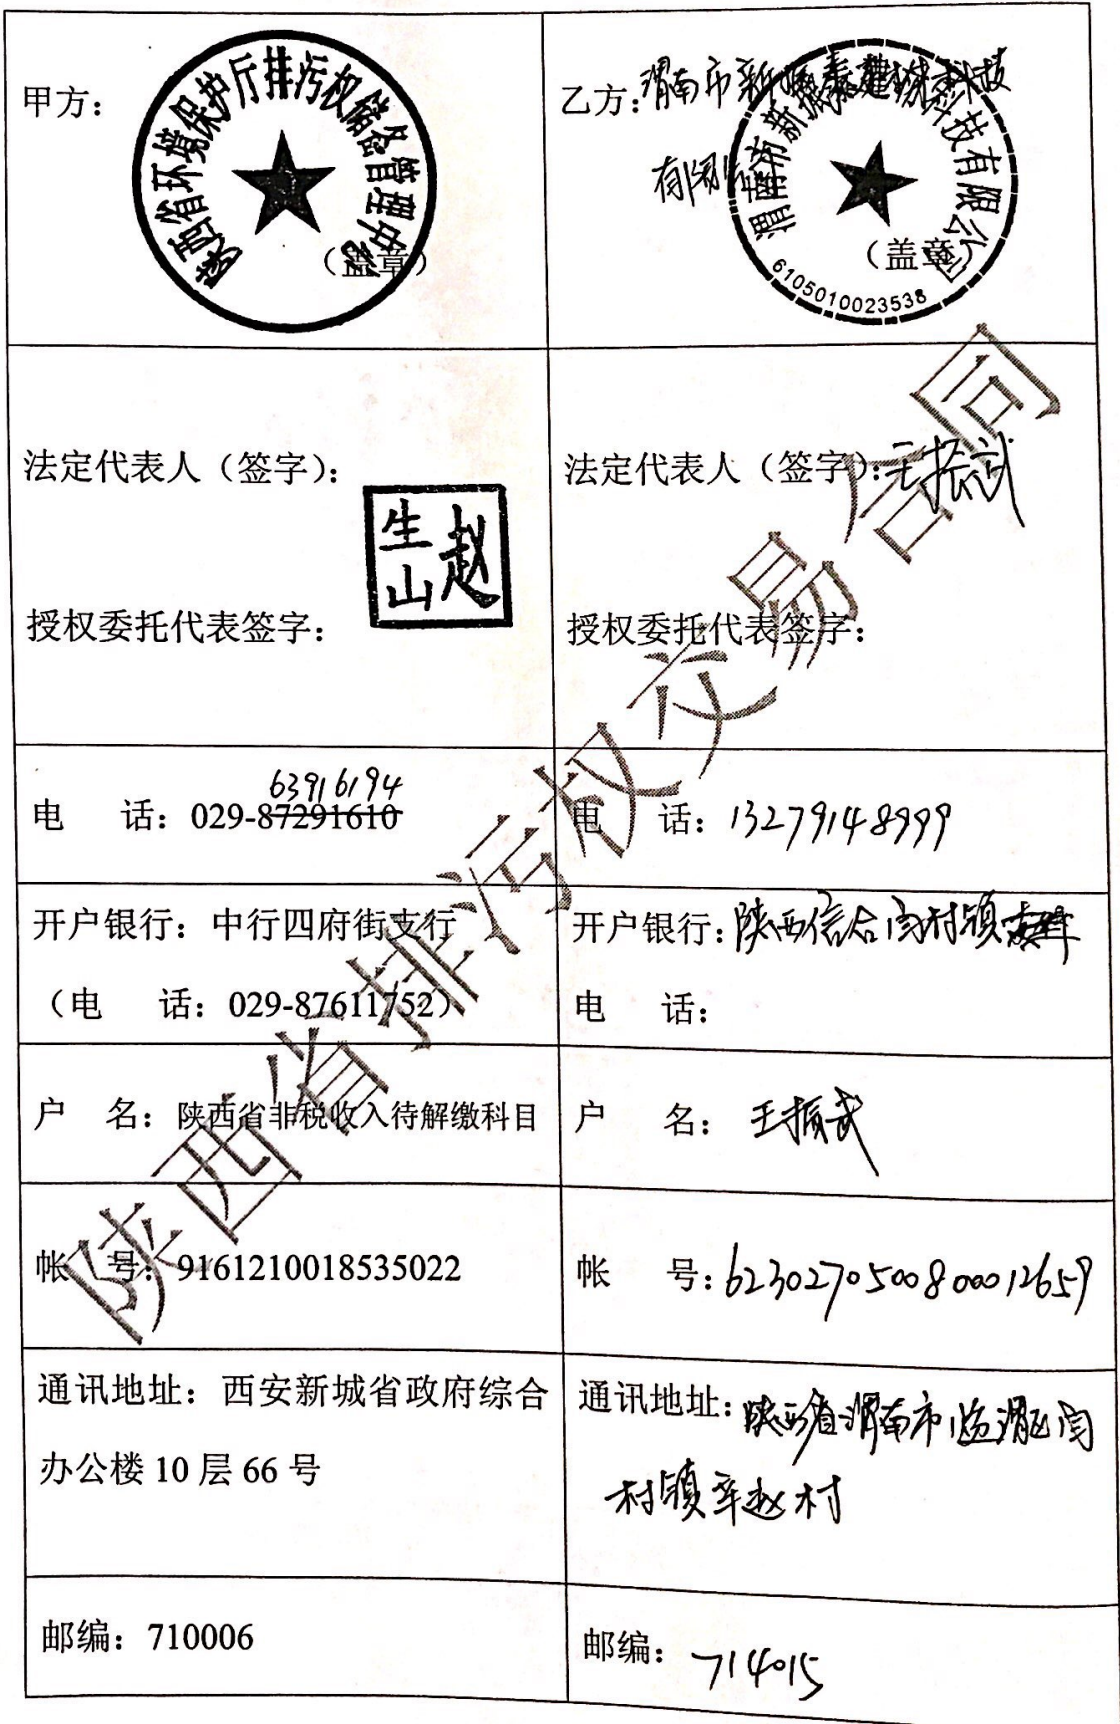 甲方：
陕西省环境保护厅排污权储备管理中心
（盖章）
乙方：渭南市新
有限公司
渭南市新 科技有限公司
（盖章）
6105010023538
法定代表人（签字）：
赵
生山
授权委托代表签字：
法定代表人（签字）：王振武
授权委托代表签字：
63916194
电 话：029-87291610
电 话：13279148999
开户银行：中行四府街支行
（电 话：029-87611752）
开户银行：陕西信合闫村镇
电 话：
户 名：陕西省非税收入待解缴科目
户 名：王振武
帐 号：9161210018535022
帐 号：6230270500800012659
通讯地址：西安新城省政府综合
办公楼 10 层 66 号
通讯地址：陕西省渭南市临渭区闫
村镇辛赵村
邮编：710006
邮编：714015
陕西省排污权交易合同